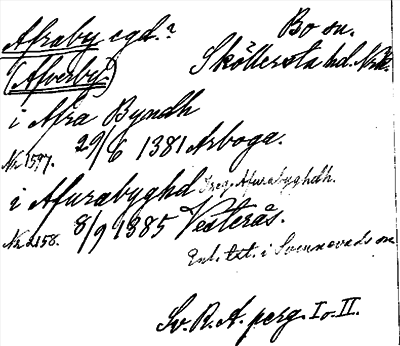 Afraby egd.?
Bo sn.
(Åfverby.)
Sköllersta hd. Nrk.
i Afra Byndh
Nr. 1597. 29/6 1381 Arboga.
i Afurabyghd
Ireg. Afurabyghdh.
Nr. 2158. 8/9 1385 Vesterås.
Enl. txt. i Svennevads sn
Sv. R. A. perg. I o. II.